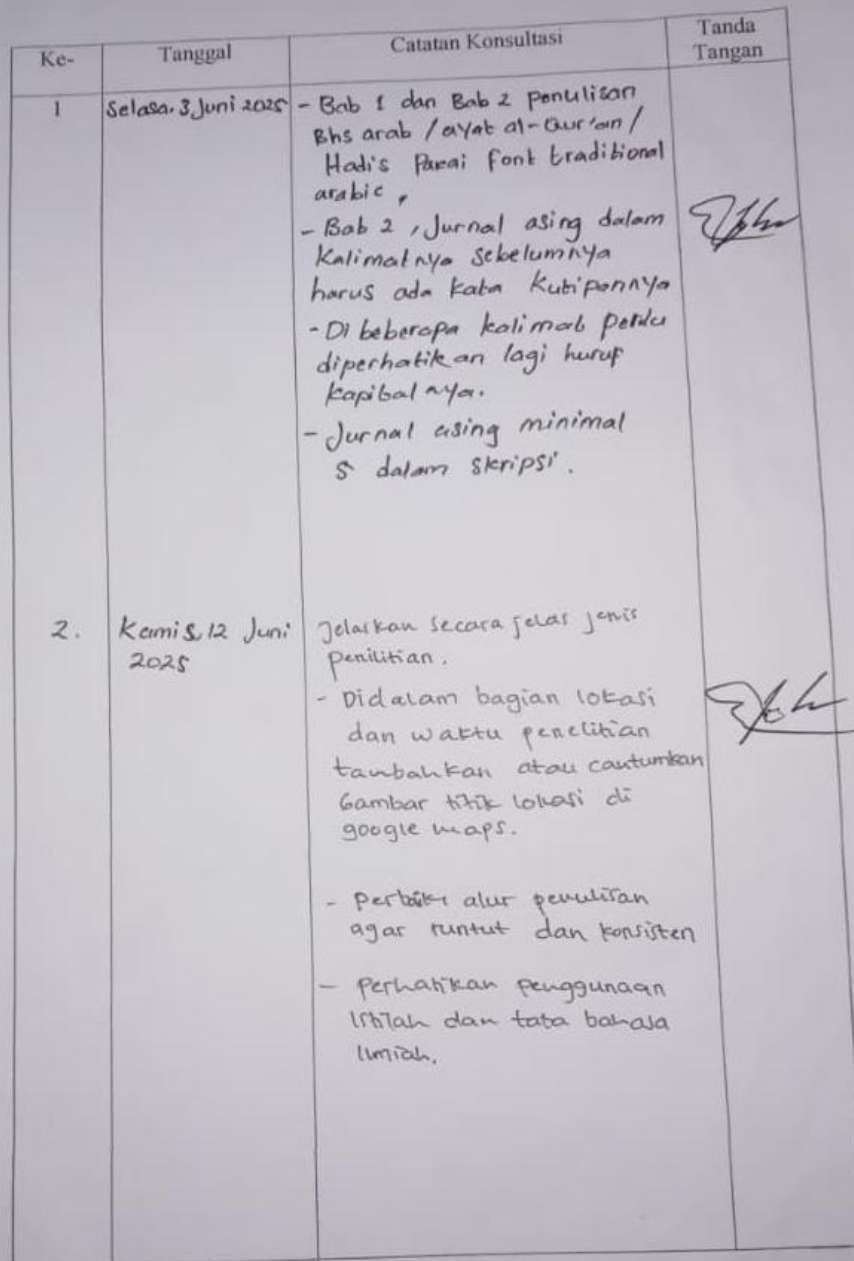 Ke- Tanggal Catatan Konsultasi Tanda
Tangan
1 Selasa, 3 Juni 2025 - Bab 1 dan Bab 2 penulisan
Bhs arab / ayat al-Qur'an /
Hadis Pakai font traditional
arabic,
- Bab 2, Jurnal asing dalam
Kalimatnya Sebelumnya
harus ada kata Kutipannya
- Di beberapa kalimat perlu
diperhatikan lagi huruf
kapitalnya.
- Jurnal asing minimal
5 dalam skripsi.
2. Kamis, 12 Juni Jelaskan secara jelas jenis
2025 penilitian.
- Didalam bagian lokasi
dan waktu penelitian
tambahkan atau cantumkan
Gambar titik lokasi di
google maps.
- perbaiki alur penulisan
agar runtut dan konsisten
- perhatikan penggunaan
istilah dan tata bahasa
ilmiah.